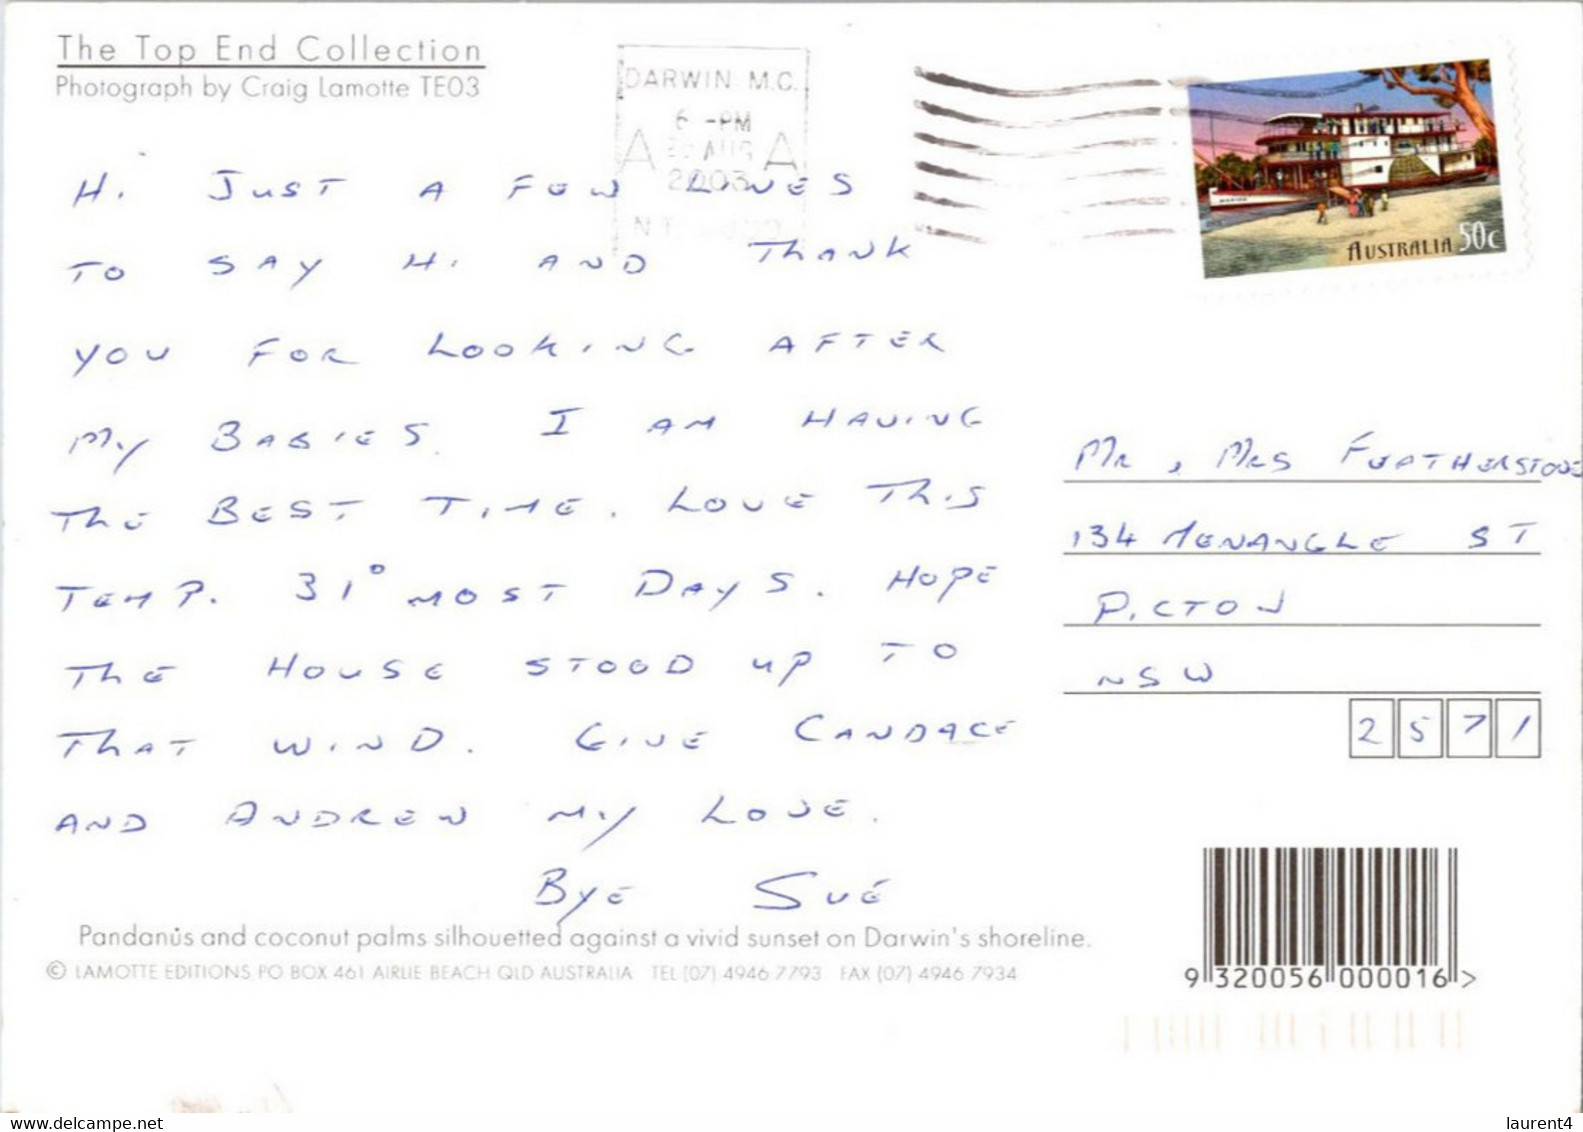 The Top End Collection
Photograph by Craig Lamotte TE03
DARWIN M.C.
6 -PM
A AUG A
2003
N.T.
AUSTRALIA 50c
HI JUST A FEW LINES
TO SAY HI AND THANK
YOU FOR LOOKING AFTER
MY BABIES. I AM HAVING
THE BEST TIME. LOVE THIS
TEMP. 31° MOST DAYS. HOPE
THE HOUSE STOOD UP TO
THAT WIND. GIVE CANDACE
AND ANDREW MY LOVE.
BYE SUE
MR , MRS FEATHERSTONE
134 MENANGLE ST
PICTON
NSW
2571
Pandanus and coconut palms silhouetted against a vivid sunset on Darwin's shoreline.
© LAMOTTE EDITIONS PO BOX 461 AIRLIE BEACH QLD AUSTRALIA TEL (07) 4946 7793 FAX (07) 4946 7934
9 320056 000016 >
www.delcampe.net
laurent4